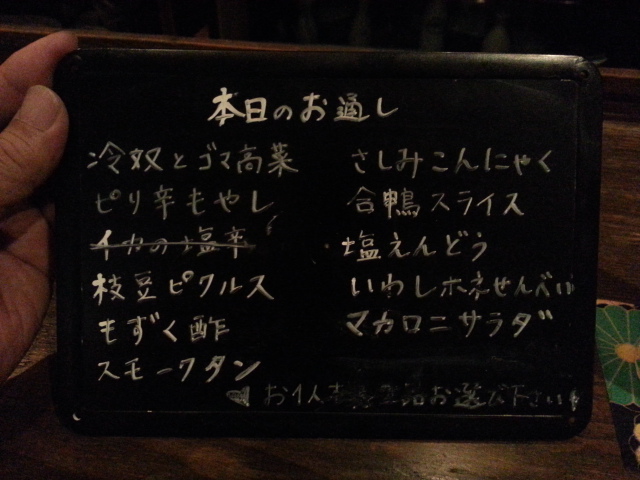 本日のお通し
冷奴とゴマ高菜
ピリ辛もやし
イカの塩辛
枝豆ピクルス
もずく酢
スモークタン
さしみこんにゃく
合鴨スライス
塩えんどう
いわしホネせんべい
マカロニサラダ
お1人 お選び下さい